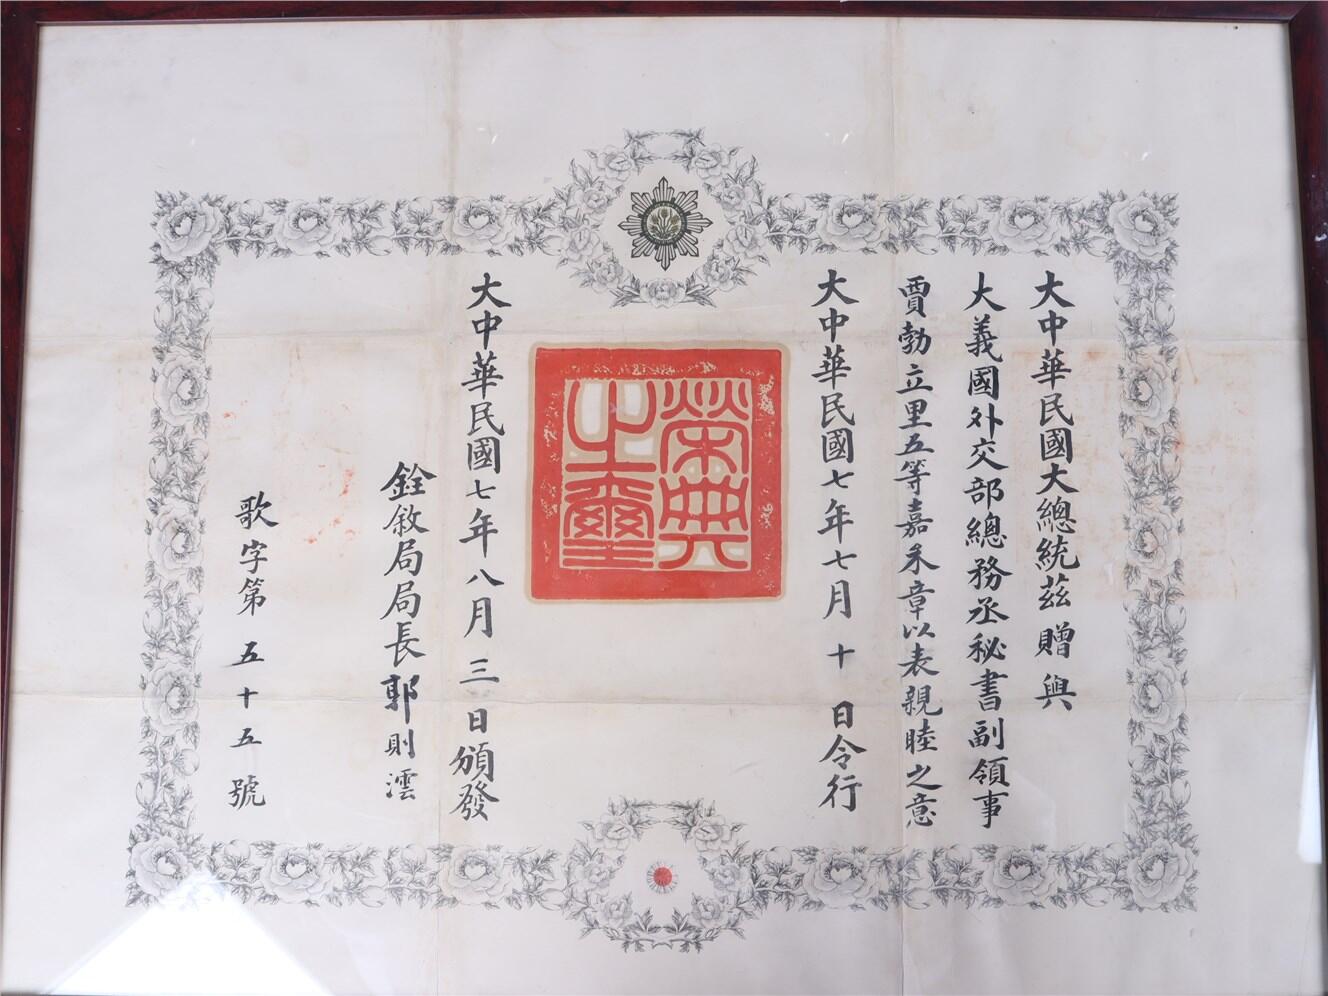 大中華民國大總統茲贈與
大義國外交部總務丞秘書副領事
賈勃立里五等嘉禾章以表親睦之意
大中華民國七年七月十日令行
榮典之璽
大中華民國七年八月三日頒發
銓敘局局長郭則澐
歌字第五十五號